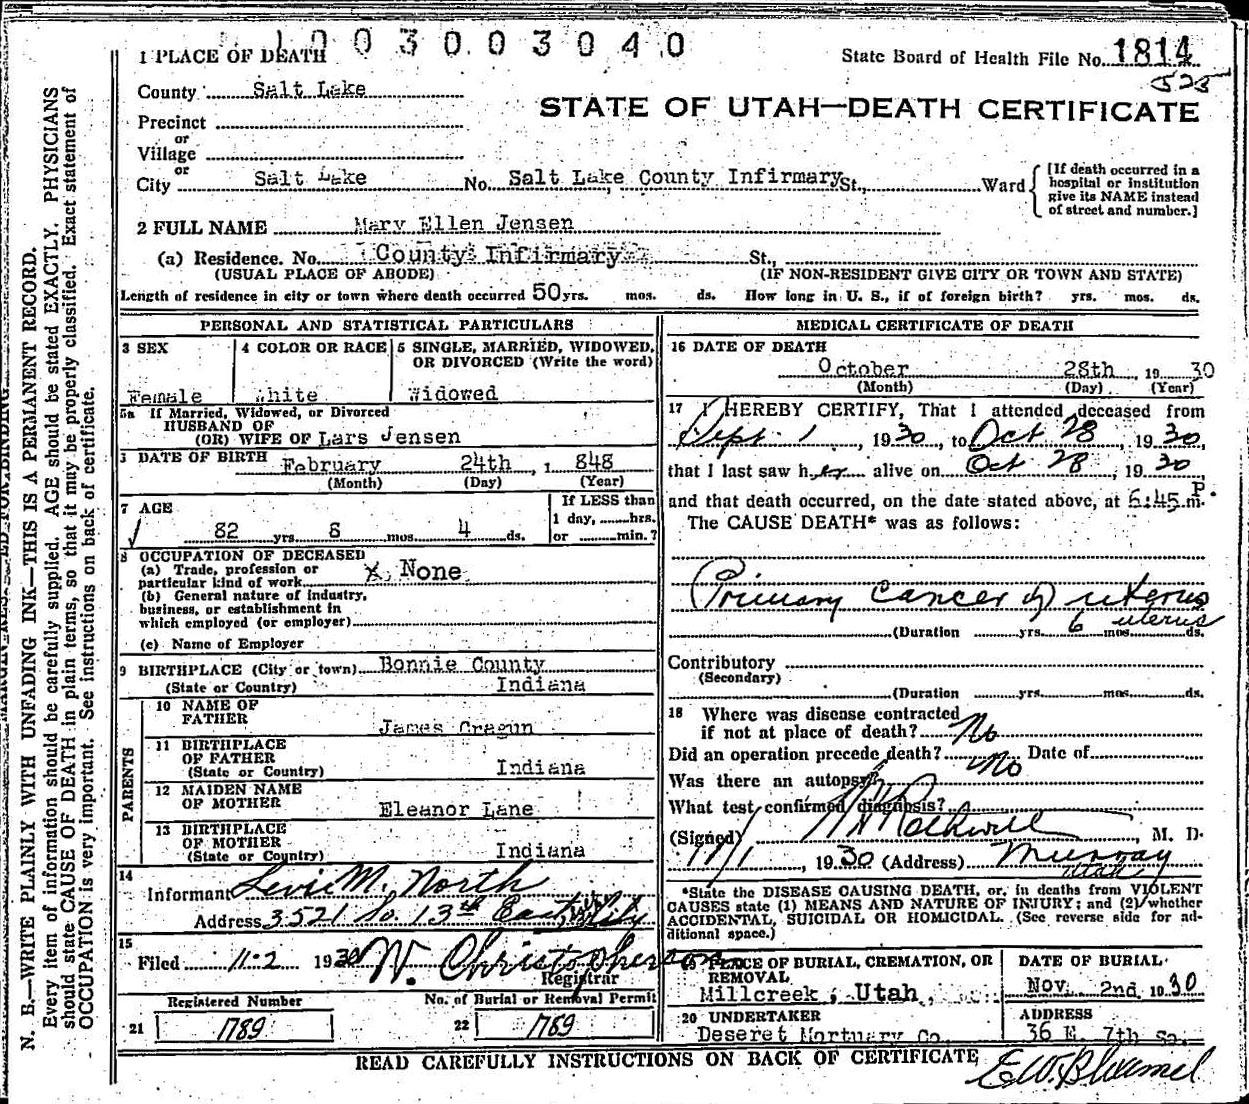 1003003040
1 PLACE OF DEATH
State Board of Health File No. 1814
525
County Salt Lake
STATE OF UTAH—DEATH CERTIFICATE
Precinct
or
Village
or
City Salt Lake No. Salt Lake County Infirmary St., Ward
[If death occurred in a
hospital or institution
give its NAME instead
of street and number.]
2 FULL NAME Mary Ellen Jensen
(a) Residence. No. County Infirmary St.,
(USUAL PLACE OF ABODE) (IF NON-RESIDENT GIVE CITY OR TOWN AND STATE)
Length of residence in city or town where death occurred 50 yrs. mos. ds. How long in U. S., if of foreign birth? yrs. mos. ds.
PERSONAL AND STATISTICAL PARTICULARS
3 SEX
Female
4 COLOR OR RACE
White
5 SINGLE, MARRIED, WIDOWED,
OR DIVORCED (Write the word)
Widowed
5a If Married, Widowed, or Divorced
HUSBAND OF
(OR) WIFE OF Lars Jensen
DATE OF BIRTH February 24th, 1 848
(Month) (Day) (Year)
7 AGE
82 yrs. 8 mos. 4 ds.
If LESS than
1 day, hrs.
or min.?
8 OCCUPATION OF DECEASED
(a) Trade, profession or
particular kind of work X None
(b) General nature of industry,
business, or establishment in
which employed (or employer)
(c) Name of Employer
9 BIRTHPLACE (City or town) Bonnie County
(State or Country) Indiana
PARENTS
10 NAME OF
FATHER James Cragun
11 BIRTHPLACE
OF FATHER
(State or Country) Indiana
12 MAIDEN NAME
OF MOTHER Eleanor Lane
13 BIRTHPLACE
OF MOTHER
(State or Country) Indiana
14
Informant Levie M. North
Address 3521 So. 13th East City
15
Filed 11-2 1930 W. Christopherson
Registrar
Registered Number
21 1789
No. of Burial or Removal Permit
22 1769
MEDICAL CERTIFICATE OF DEATH
16 DATE OF DEATH
October 28th, 19 30
(Month) (Day) (Year)
17 I HEREBY CERTIFY, That I attended deceased from
Sept. 1, 1930, to Oct 28, 1930,
that I last saw her alive on Oct 28, 1930
and that death occurred, on the date stated above, at 6:45 P m.
The CAUSE DEATH* was as follows:
Primary Cancer of uterus
uterus
(Duration yrs. 6 mos. ds.
Contributory
(Secondary)
(Duration yrs. mos. ds.
18 Where was disease contracted
if not at place of death? No
Did an operation precede death? No Date of
Was there an autopsy?
What test confirmed diagnosis?
(Signed) Rockwell, M. D.
11/1, 1930 (Address) Murray
Utah
*State the DISEASE CAUSING DEATH, or, in deaths from VIOLENT
CAUSES state (1) MEANS AND NATURE OF INJURY; and (2) whether
ACCIDENTAL, SUICIDAL OR HOMICIDAL. (See reverse side for ad-
ditional space.)
19 PLACE OF BURIAL, CREMATION, OR
REMOVAL
Millcreek, Utah,
DATE OF BURIAL
Nov. 2nd, 1930
20 UNDERTAKER
Deseret Mortuary Co.
ADDRESS
36 E. 7th So.
READ CAREFULLY INSTRUCTIONS ON BACK OF CERTIFICATE
N. B.—WRITE PLAINLY WITH UNFADING INK—THIS IS A PERMANENT RECORD.
Every item of information should be carefully supplied. AGE should be stated EXACTLY. PHYSICIANS
should state CAUSE OF DEATH in plain terms, so that it may be properly classified. Exact statement of
OCCUPATION is very important. See instructions on back of certificate.